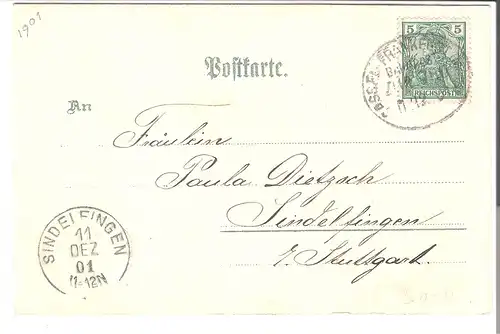 1901
5
REICHSPOST
Postkarte.
An
Fräulein
Paula Dietzsch
Sindelfingen
b/ Stuttgart.
SINDELFINGEN
11
DEZ
01
11-12N